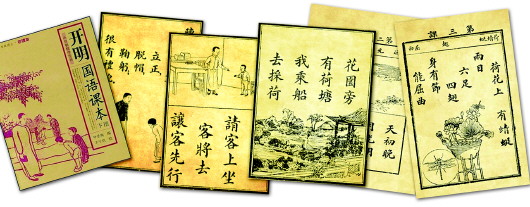 开明
国语课本
立正、
脱帽、
鞠躬、
很有禮
請客上坐
客將去
讓客先行
花園旁
有荷塘
我乘船
去採荷
天初晚
第三課
荷花上
有蜻蜓
兩目
六足
四翅
身有節
能屈曲